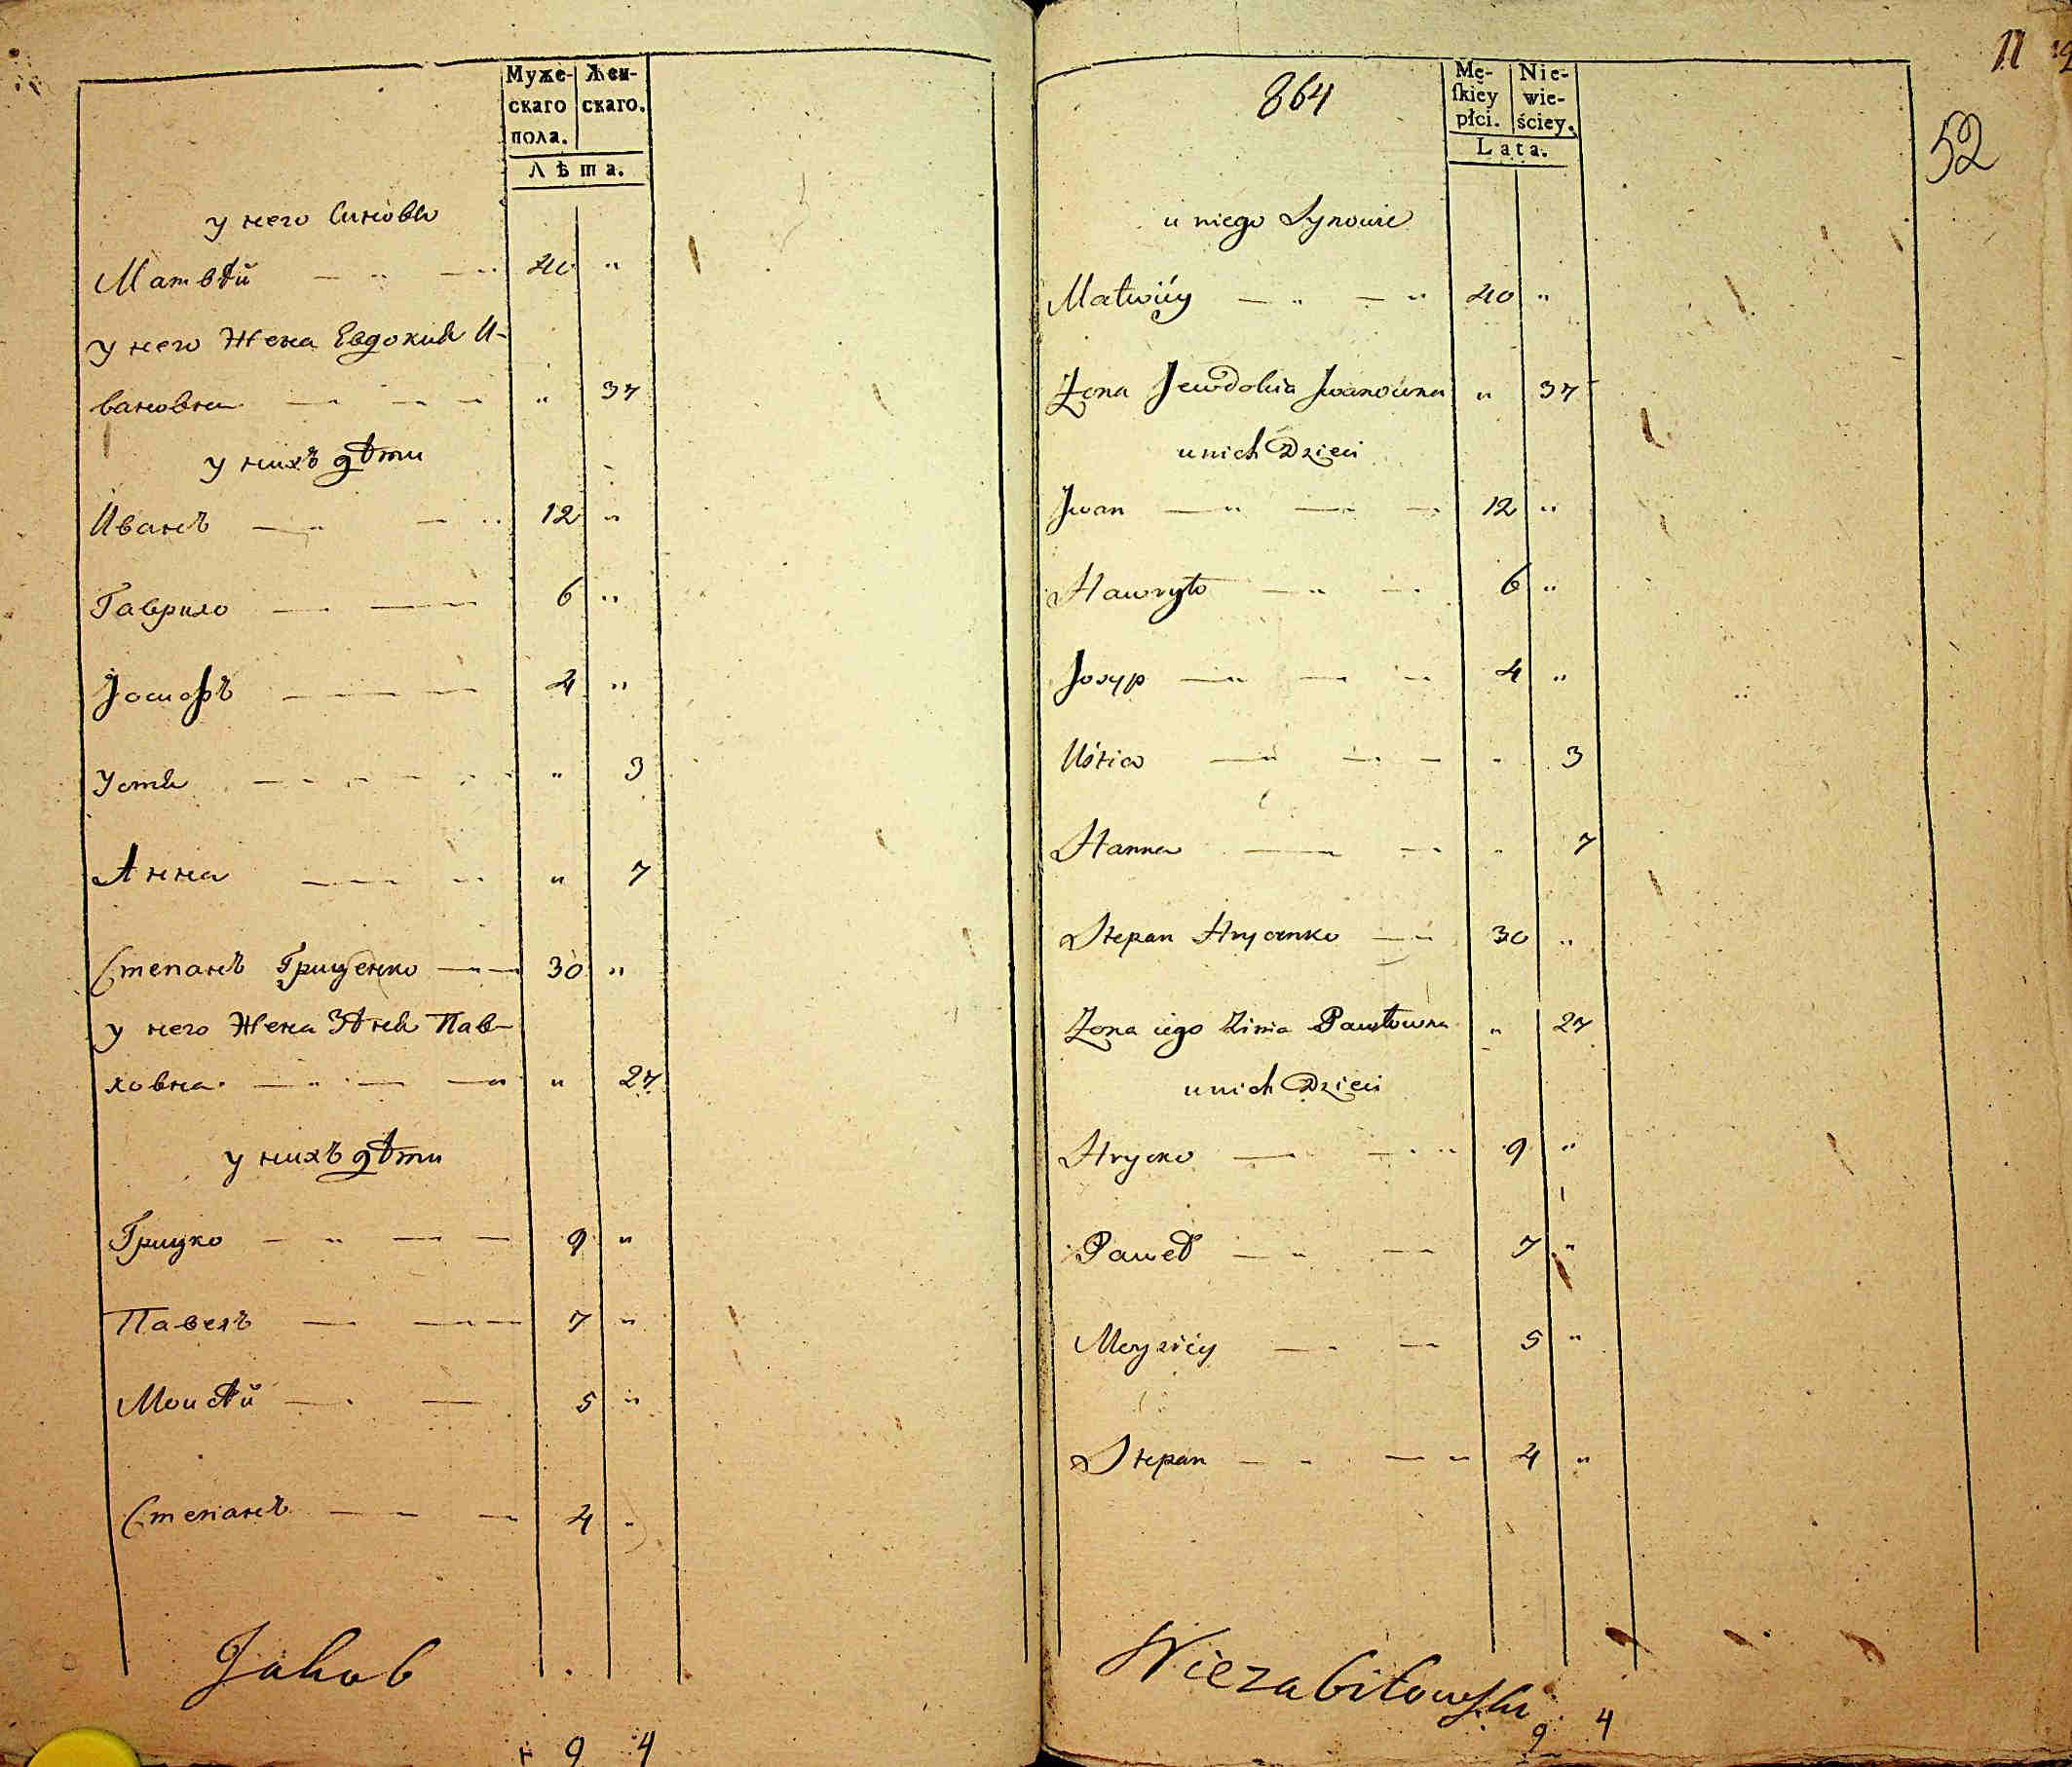 Муже- Жен-
скаго скаго.
пола.
Лѣта.
у него Синовѣ
Матвѣй 40 "
у него Жена Евдокия И-
вановна " 37
у нихъ дѣти
Иванъ 12 "
Гаврило 6 "
Іосифъ 4 "
Устя " 3
Анна " 7
Степанъ Грищенко 30 "
у него Жена Зѣня Пав-
ловна " 27
у нихъ дѣти
Грицко 9 "
Павелъ 7 "
Моисѣй 5 "
Степанъ 4 "
Jakob
9 4
11
864
52
Mę- Nie-
ſkiey wie-
płci. ściey.
Lata.
u niego Synowie
Matwiiy 40 "
Żona Jewdokia Jwanowna " 37
u nich Dzieci
Jwan 12 "
Hawryło 6 "
Josyp 4 "
Uścia " 3
Hanna " 7
Stepan Hrycenko 30 "
Żona iego Zinia Pawłowna " 27
u nich Dzieci
Hrycko 9 "
Paweł 7 "
Moyziey 5 "
Stepan 4 "
Niezabitowſki
9 4